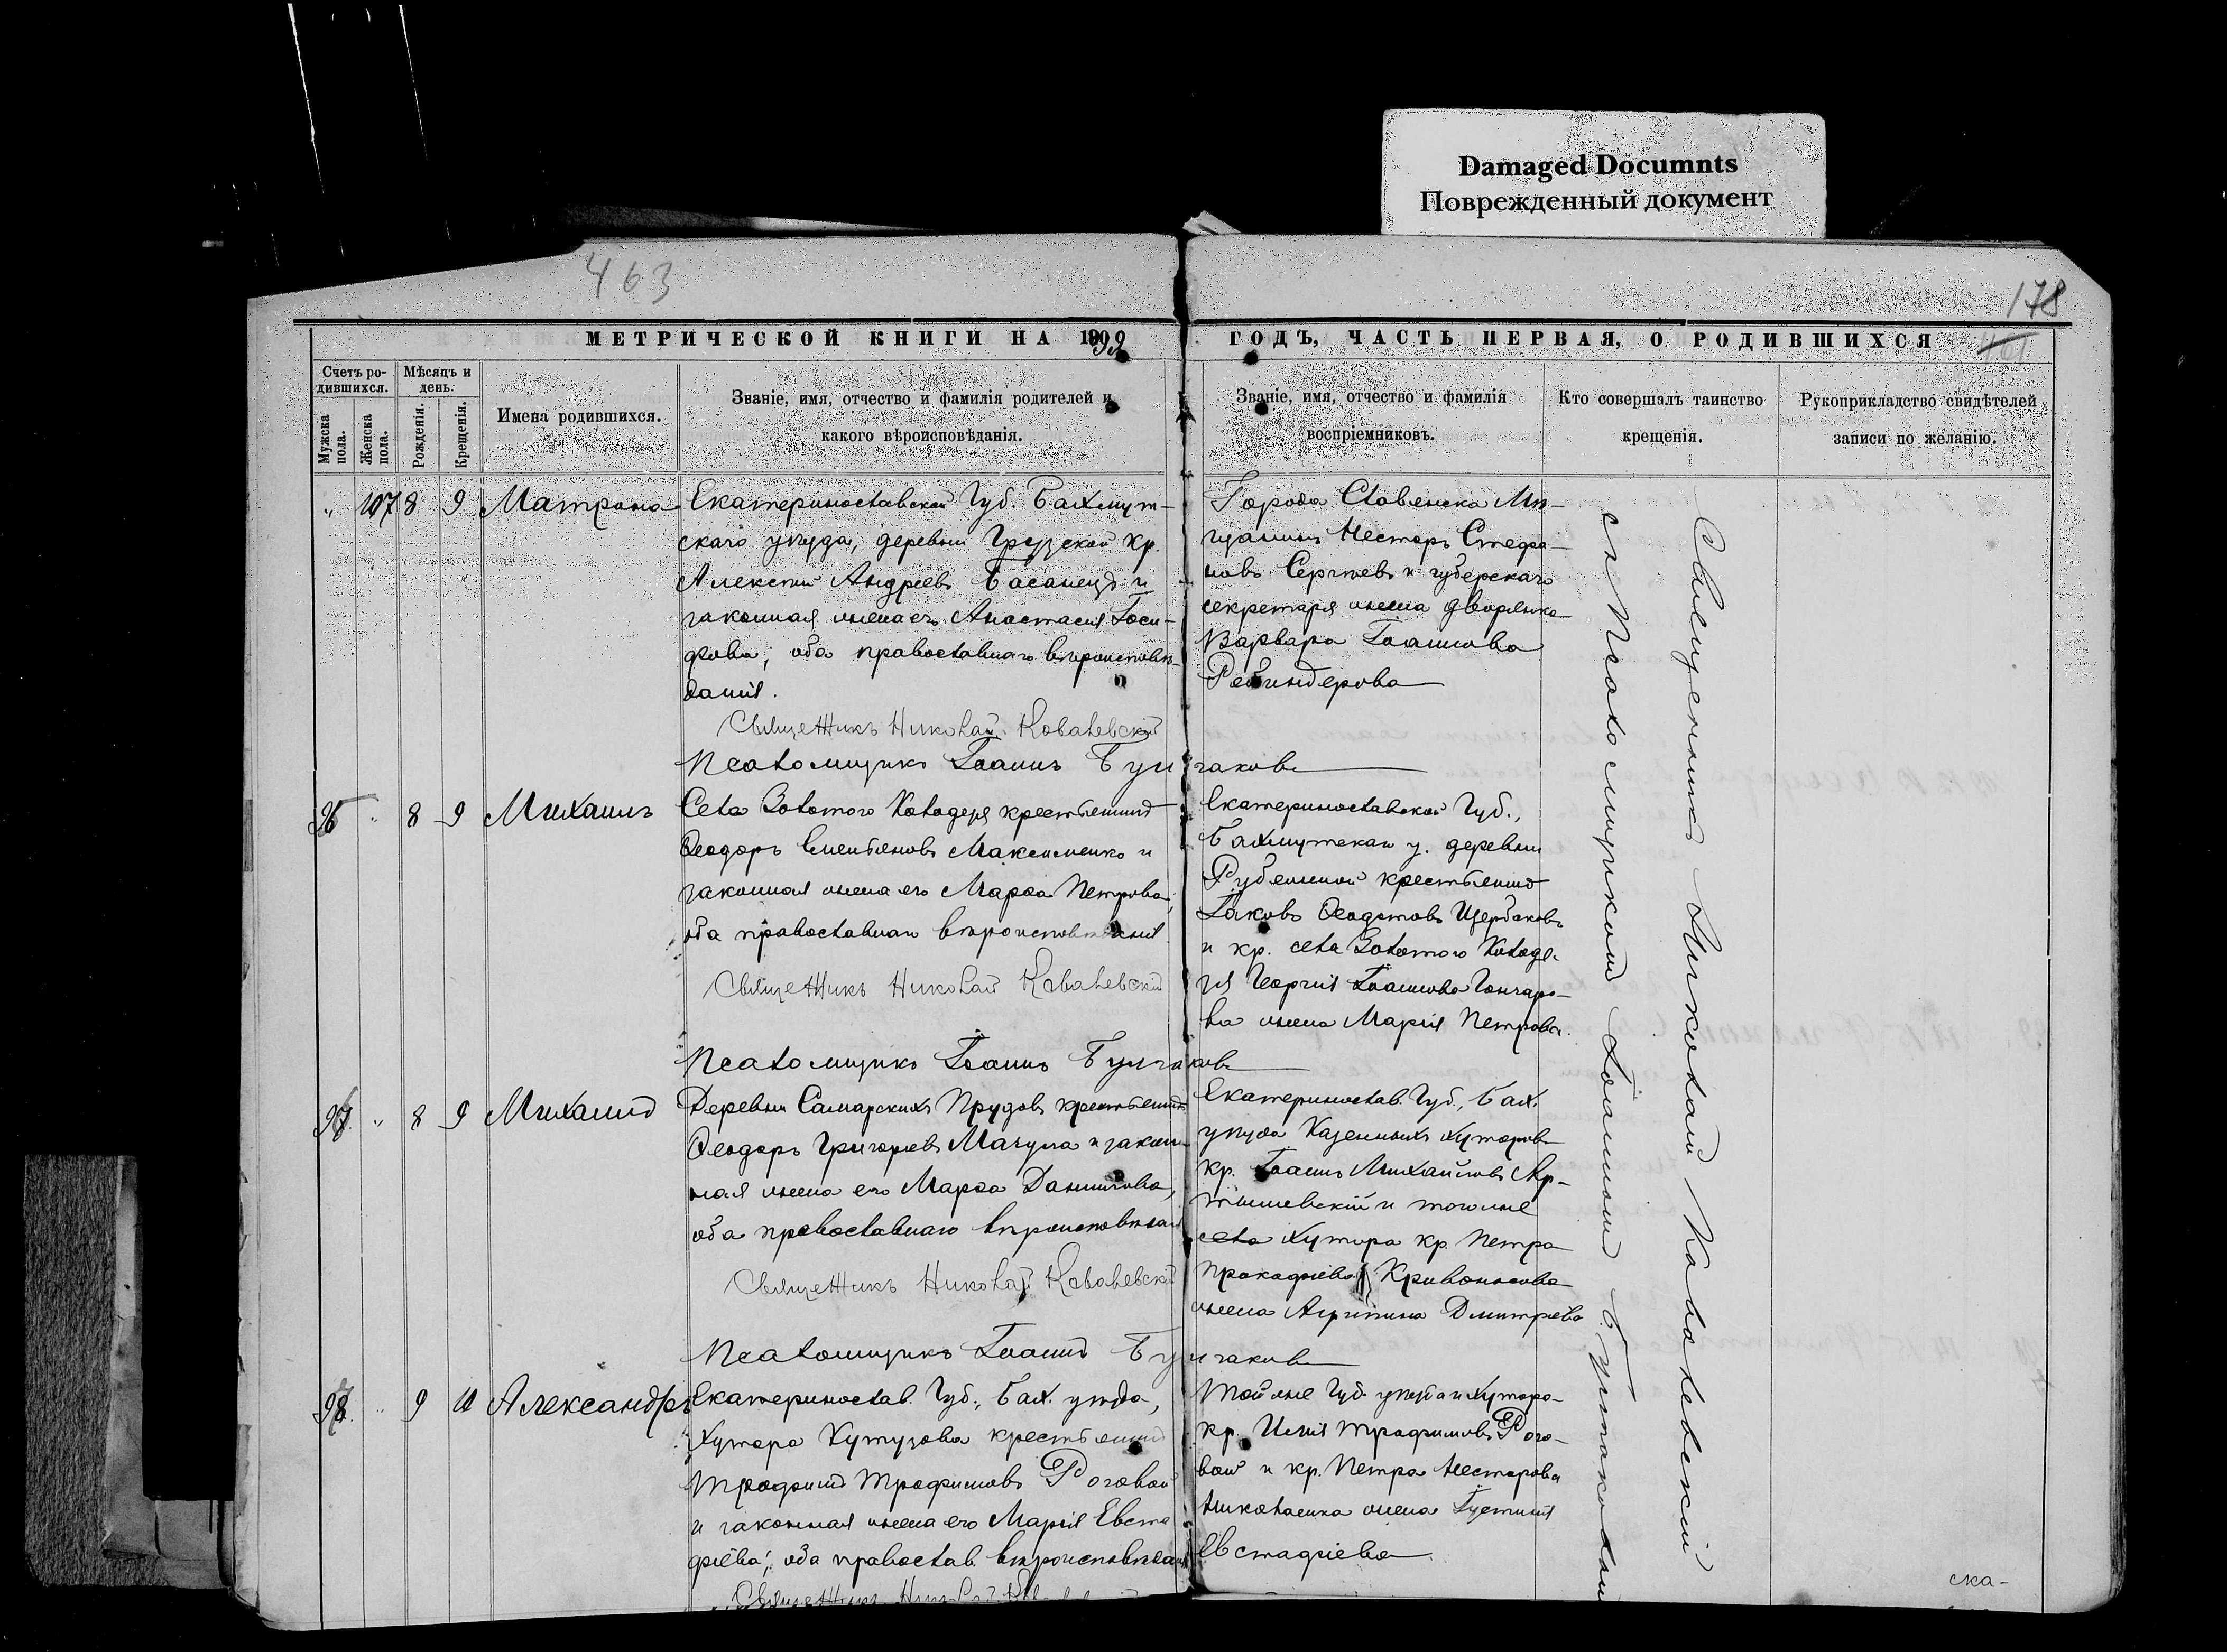 Damaged Documnts
Поврежденный документ
463
178
МЕТРИЧЕСКОЙ КНИГИ НА 1892
ГОДЪ, ЧАСТЬ ПЕРВАЯ, О РОДИВШИХСЯ
Счетъ ро-
дившихся.
Мѣсяцъ и
день.
Мужска
пола.
Женска
пола.
Рожденія.
Крещенія.
Имена родившихся.
Званіе, имя, отчество и фамилія родителей и
какого вѣроисповѣданія.
Званіе, имя, отчество и фамилія
воспріемниковъ.
Кто совершалъ таинство
крещенія.
Рукоприкладство свидѣтелей
записи по желанію.
" 107 8 9 Матрона
Екатеринославской Губ. Бахмут-
скаго уѣзда, деревни Грузской кр.
Алексѣй Андреевъ Басанецъ и
законная жена его Анастасія Іоси-
фова; оба православнаго вѣроисповѣ-
данія.
Священникъ Николай Ковалевскій
Псаломщикъ Іоаннъ Булгаковъ
Города Славянска Мѣ-
щанинъ Несторъ Стефа-
новъ Сергѣевъ и губерскаго
секретаря жена дворянка
Варвара Іоаннова
Ребиндерова
" 8 9 Михаилъ
Села Золотого Колодезя крестьянинъ
Ѳеодоръ Емельяновъ Максименко и
законная жена его Марѳа Петрова;
оба православнаго вѣроисповѣданія
Священникъ Николай Ковалевскій
Псаломщикъ Іоаннъ Булгаковъ
Екатеринославской Губ.,
Бахмутскаго у. деревни
крестьянинъ
Іаковъ Ѳеодотовъ Щербаковъ
и кр. села Золотого Колоде-
зя Георгія Іоаннова Гончаро-
ва жена Марія Петрова.
" 8 9 Михаилъ
Деревни Самарскихъ Прудовъ крестьянинъ
Ѳеодоръ Григорьевъ Мачула и закон-
ная жена его Марѳа Даниилова,
оба православнаго вѣроисповѣданія
Священникъ Николай Ковалевскій
Псаломщикъ Іоаннъ Булгаковъ
Екатеринослав. Губ., Бах.
уѣзда Казенныхъ хуторовъ
кр. Іоаннъ Михайловъ Ар-
тышевскій и того же
села хутора кр. Петра
Кривоносова
жена Агрипина Дмитріева
" 9 11 Александръ
Екатеринослав. Губ., Бах. уѣзда,
Хутора Кутузова крестьянинъ
Трофимъ Трофимовъ Роговой
и законная жена его Марія Евста
фіева; оба православ. вѣроисповѣданія
Священникъ Николай
Той же Губ. уѣзда и хутора
кр. Илія Трофимовъ Рого-
вой и кр. Петра Нестерова
Николаенка жена Іустинія
Евстафіева
Священникъ Николай Ковалевскій
съ Псаломщикомъ Іоанномъ Булгаковым
ска-